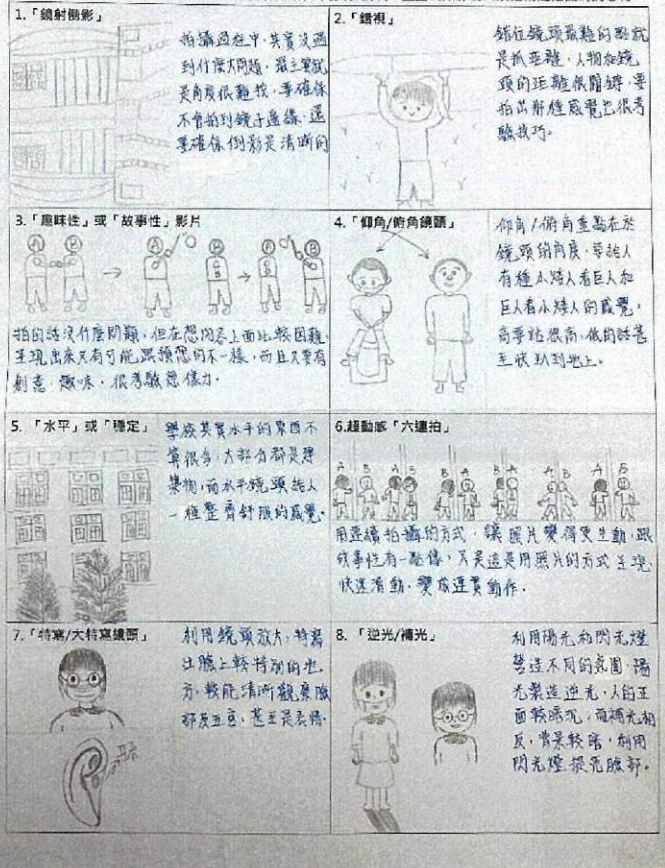 1.「鏡射倒影」
拍攝過程中,其實沒遇
到什麼大問題,最主要就
是角度很難找,要確保
不會拍到鏡子邊緣,還
要確保倒影是清晰的
2.「錯視」
錯位鏡頭最難的點就
是抓距離,人物和鏡
頭的距離很關鍵,要
拍出那種感覺也很考
驗技巧。
3.「趣味性」或「故事性」影片
A B A B A B
拍的話沒什麼問題,但在想內容上面比較困難,
呈現出來又有可能跟預想的不一樣,而且又要有
創意、趣味,很考驗想像力.
4.「仰角/俯角鏡頭」
仰角/俯角重點在於
鏡頭的角度,要給人
有種小矮人看巨人和
巨人看小矮人的感覺,
高要站很高,低的話甚
至快趴到地上。
5. 「水平」或「穩定」
學校其實水平的東西不
算很多,大部分都是建
築物,而水平鏡頭給人
一種整齊舒服的感覺.
6.超動感「六連拍」
A B A B B A B A A B A B
用連續拍攝的方式,讓照片變得更生動,跟
故事性有一點像,只是這是用照片的方式呈現,
快速滑動,變成連貫動作.
7.「特寫/大特寫鏡頭」
利用鏡頭放大,特寫
出臉上較特別的地
方,較能清晰觀察臉
部及五官,甚至是表情.
8. 「逆光/補光」
利用陽光和閃光燈
營造不同的氛圍,陽
光製造逆光,人的正
面較暗沉,而補光相
反,背景較暗,利用
閃光燈提亮臉部。